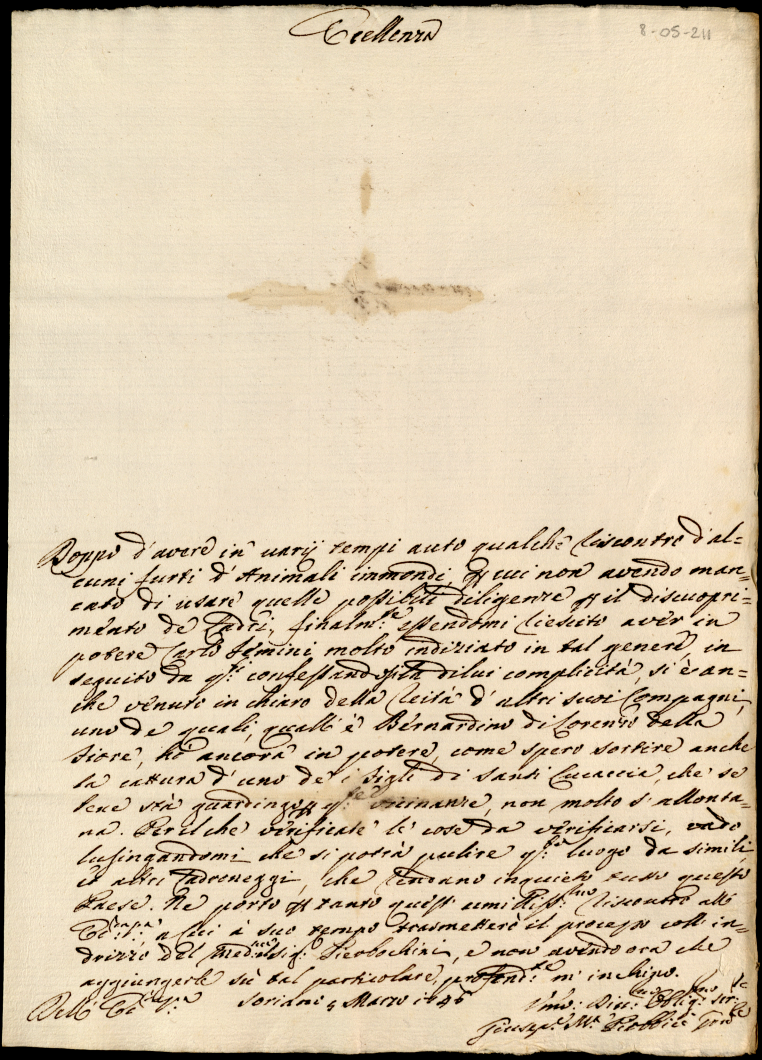 Eccellenza
8-05-211
Doppo d'avere in varij tempi auto qualche riscontro d'al=
cuni furti d'Animali immondi, p cui non avendo man=
cato di usare quelle possibili diligenze p il discopri=
mento de Ladri, finalm.te essendomi riescito aver in
potere Carlo Femini molto indiziato in tal genere, in
seguito da q.ti confessando sulla di lui complicità, si è an=
che venuto in chiaro della reità d'altri suoi Compagni,
uno de quali, quall'è Bernardino di Lorenzo della
Fiore, hò ancora in potere, come spero sortire anche
la cattura d'uno de i Figli di Santi Cucaccia, che se
bene stà guardingo p q.te vicinanze, non molto s'allonta=
na. Perilche verificate le cose da verificarsi, vado
lusingandomi che si potrà pulire q.to luogo da simili,
et altri Ladroneggi, che rendano inquieto tutto questo
Paese. Ne porto p tanto quest'umiliss.mo riscontro all'
a cui à suo tempo trasmetterò il processo coll'in=
drizzo del med.mo Sig.r Pierbochini, e non avendo ora che
aggiungerle sù tal particolare, profond.te m'inchino.
Dell' Soriano 5 Marzo
Umo: Dev: Oblig: Ser:
Giusep.e M.a